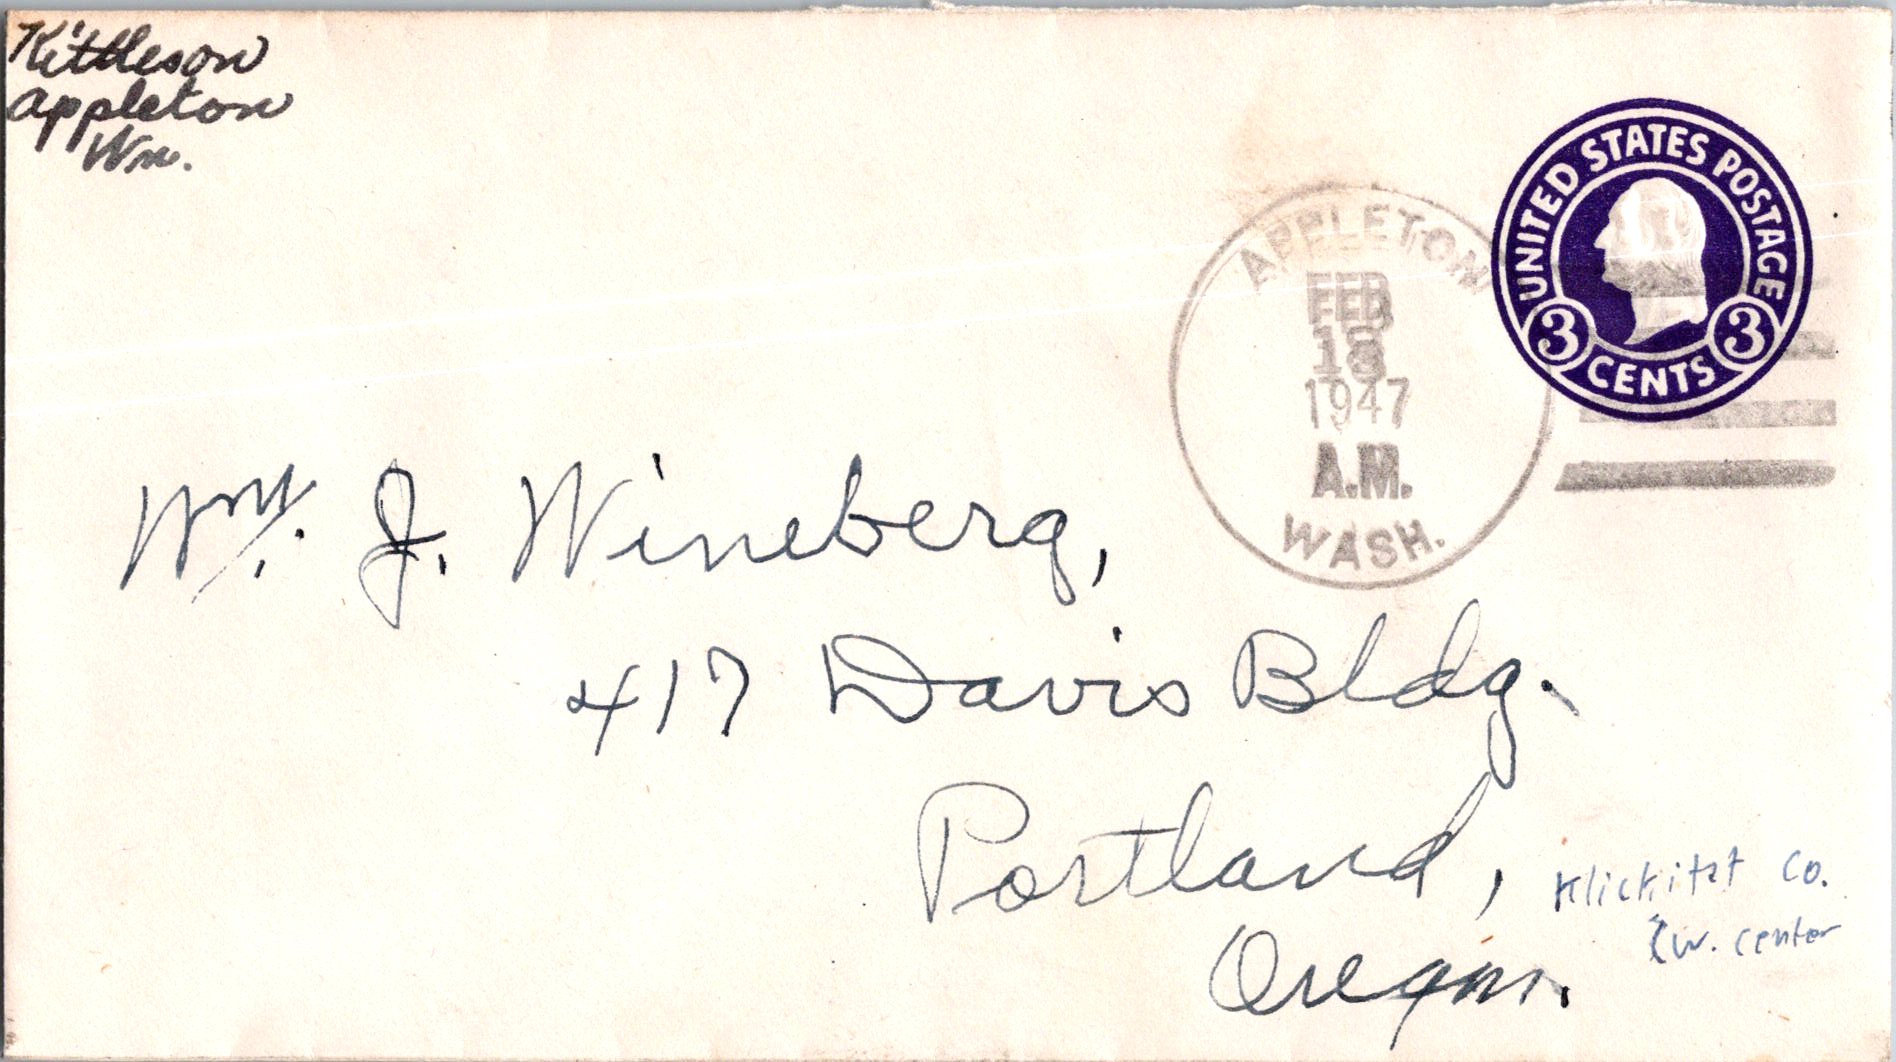 Kittleson
Appleton
Wn.
UNITED STATES POSTAGE
3 CENTS 3
APPLETON
FEB
1947
A.M.
WASH.
Wm. J. Wineberg,
417 Davis Bldg.
Portland,
Oregon.
Klickitat Co.
w. center